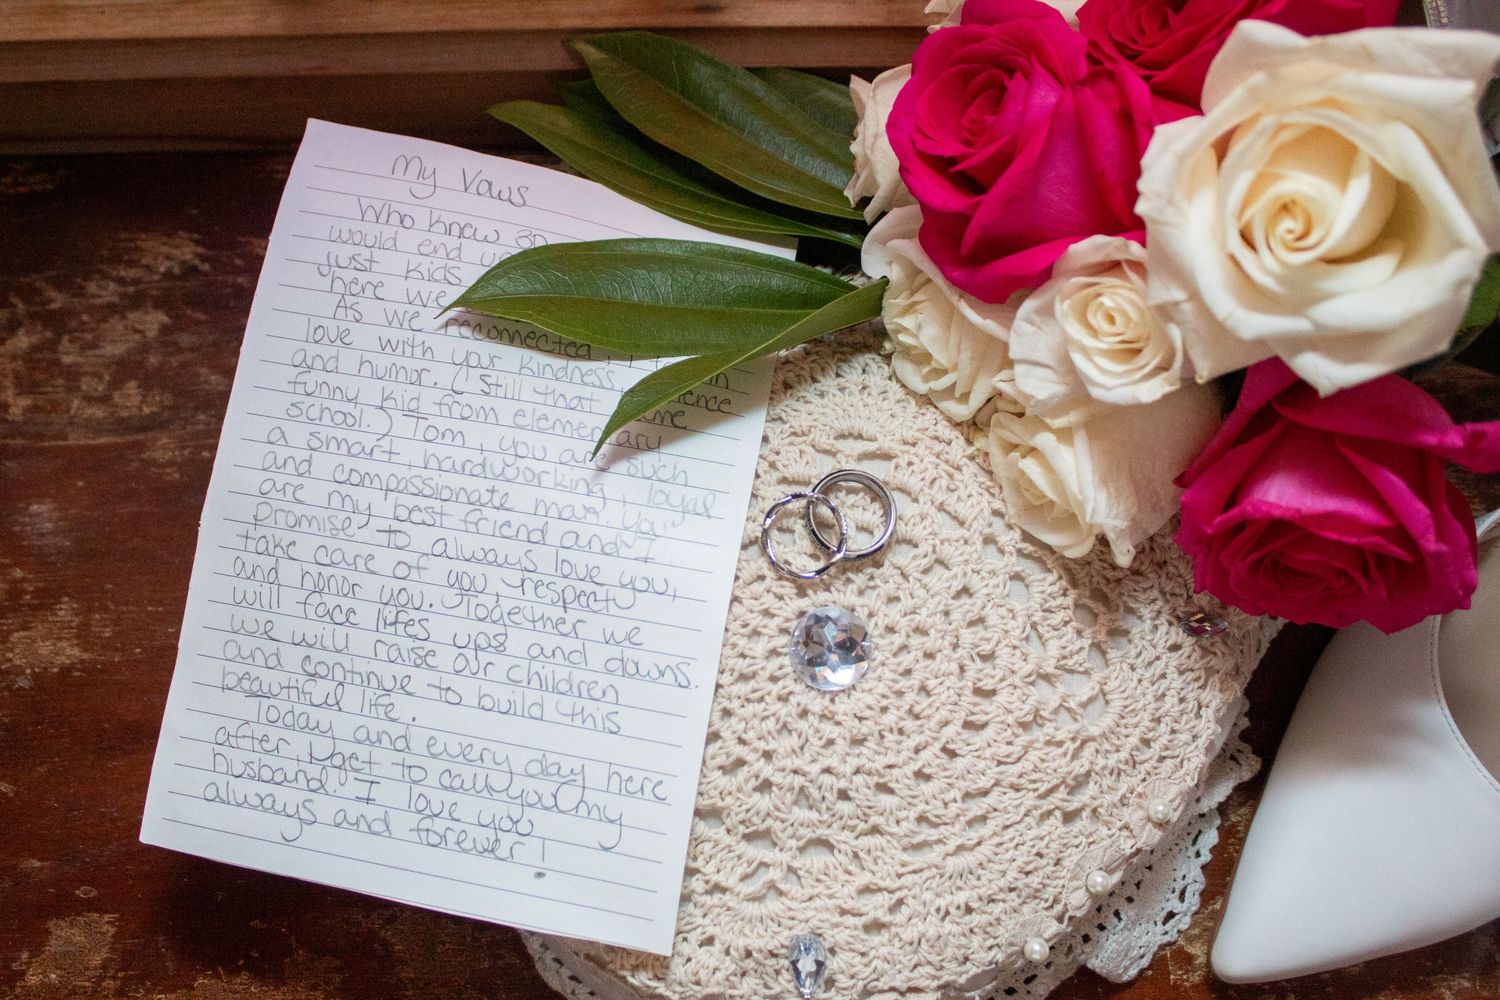 My Vows
Who knew 30
would end
just kids
here we
As we reconnected, I
love with your kindness,
and humor. (Still that same
funny kid from elementary
school.) Tom, you are such
a smart, hardworking, loyal
and compassionate man. You
are my best friend and I
promise to always love you,
take care of you, respect
and honor you. Together we
will face lifes ups and downs.
we will raise our children
and continue to build this
beautiful life.
Today and every day here
after, I get to call you my
husband. I love you
always and forever!